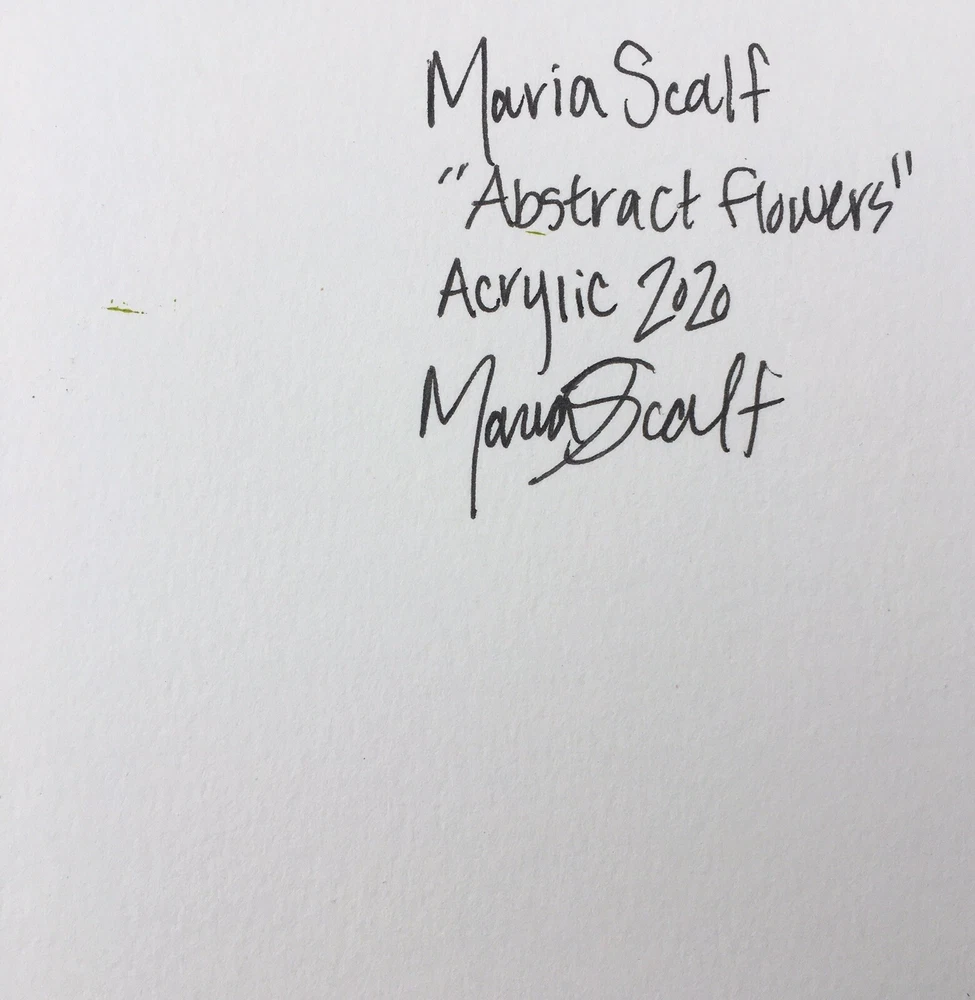 Maria Scalf
"Abstract flowers"
Acrylic 2020
Maria Scalf